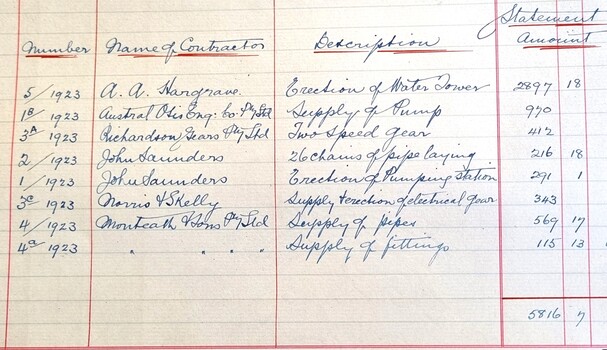 Statement
Number Name of Contractor Description Amount
5/1923 A. A. Hargrave. Erection of Water Tower 2897 18
1B/1923 Austral Otis Eng. Co. Pty Ltd Supply of Pump 970
3A/1923 Richardson Gears Pty Ltd Two Speed gear 412
2/1923 John Saunders 26 chains of pipe laying 216 18
1/1923 John Saunders Erection of Pumping station 291 1
3c/1923 Norris & Skelly Supply & erection of electrical gear 343
4/1923 Monteath & Sons Pty Ltd Supply of pipes 569 17
4a/1923 " " " " Supply of fittings 115 13
5816 7